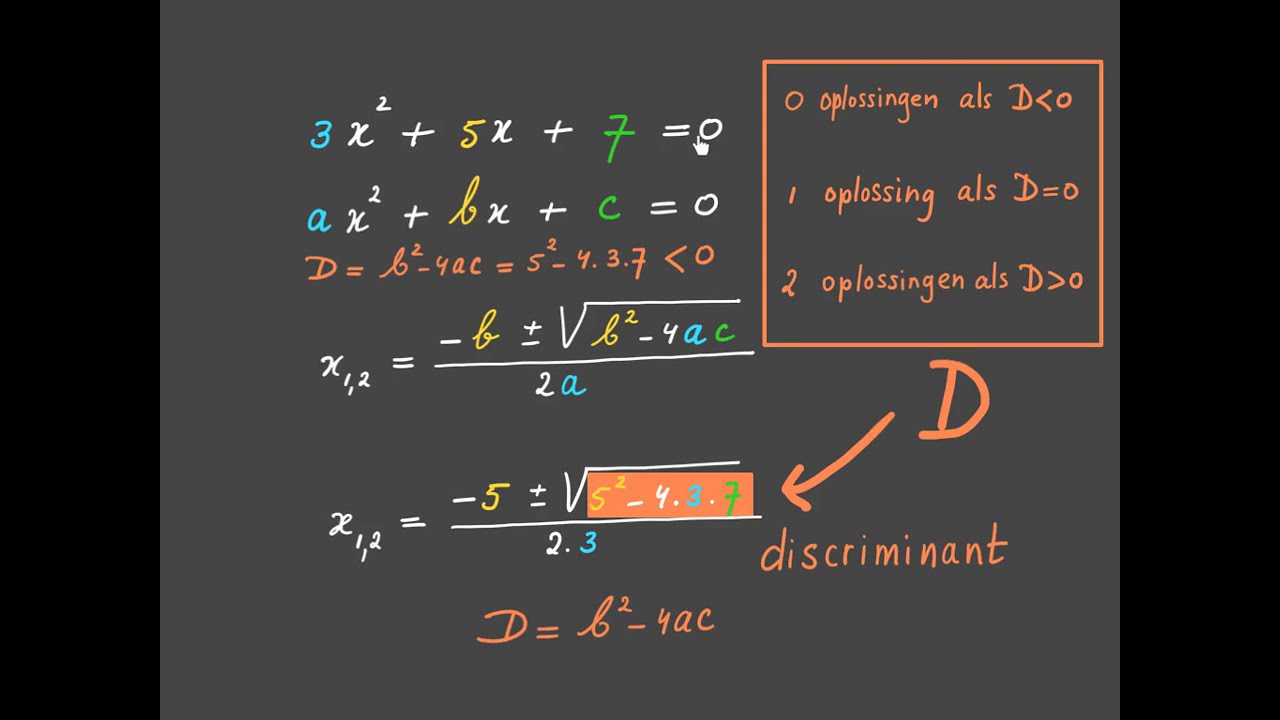 3x² + 5x + 7 = 0
ax² + bx + c = 0
D = b² - 4ac = 5² - 4.3.7 < 0
x₁,₂ = (-b ± √(b² - 4ac)) / 2a
x₁,₂ = (-5 ± √(5² - 4.3.7)) / 2.3
D = b² - 4ac
0 oplossingen als D<0
1 oplossing als D=0
2 oplossingen als D>0
D
discriminant